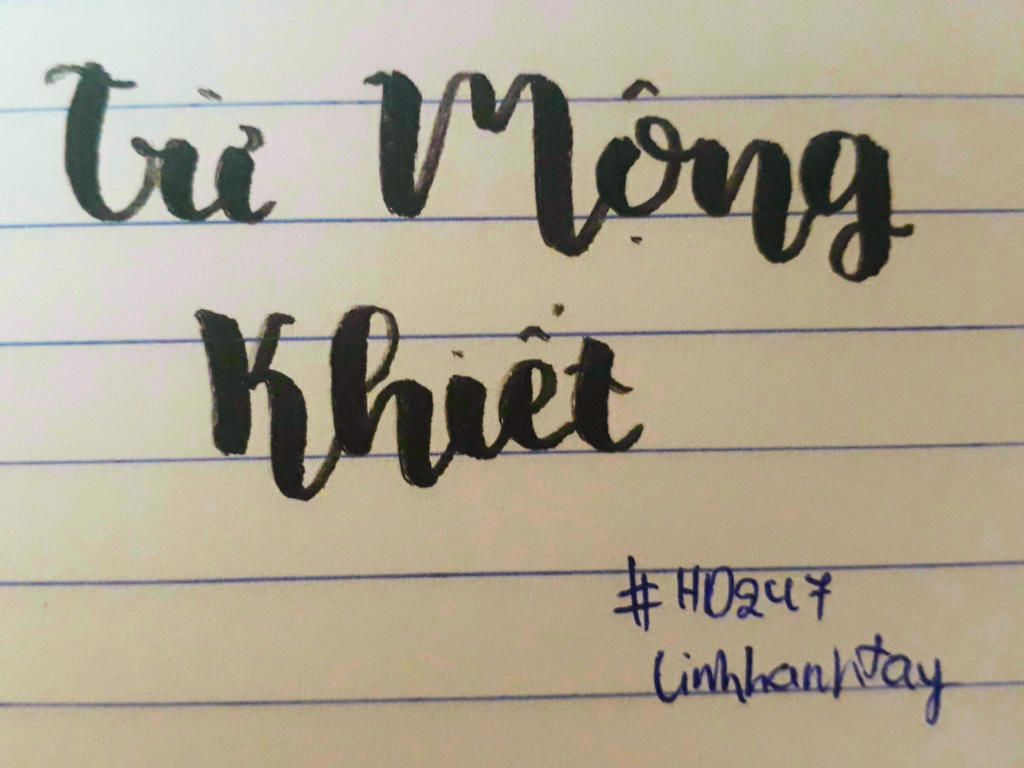 Trừ Mộng
Khiết
#HD247
linhhanhtay